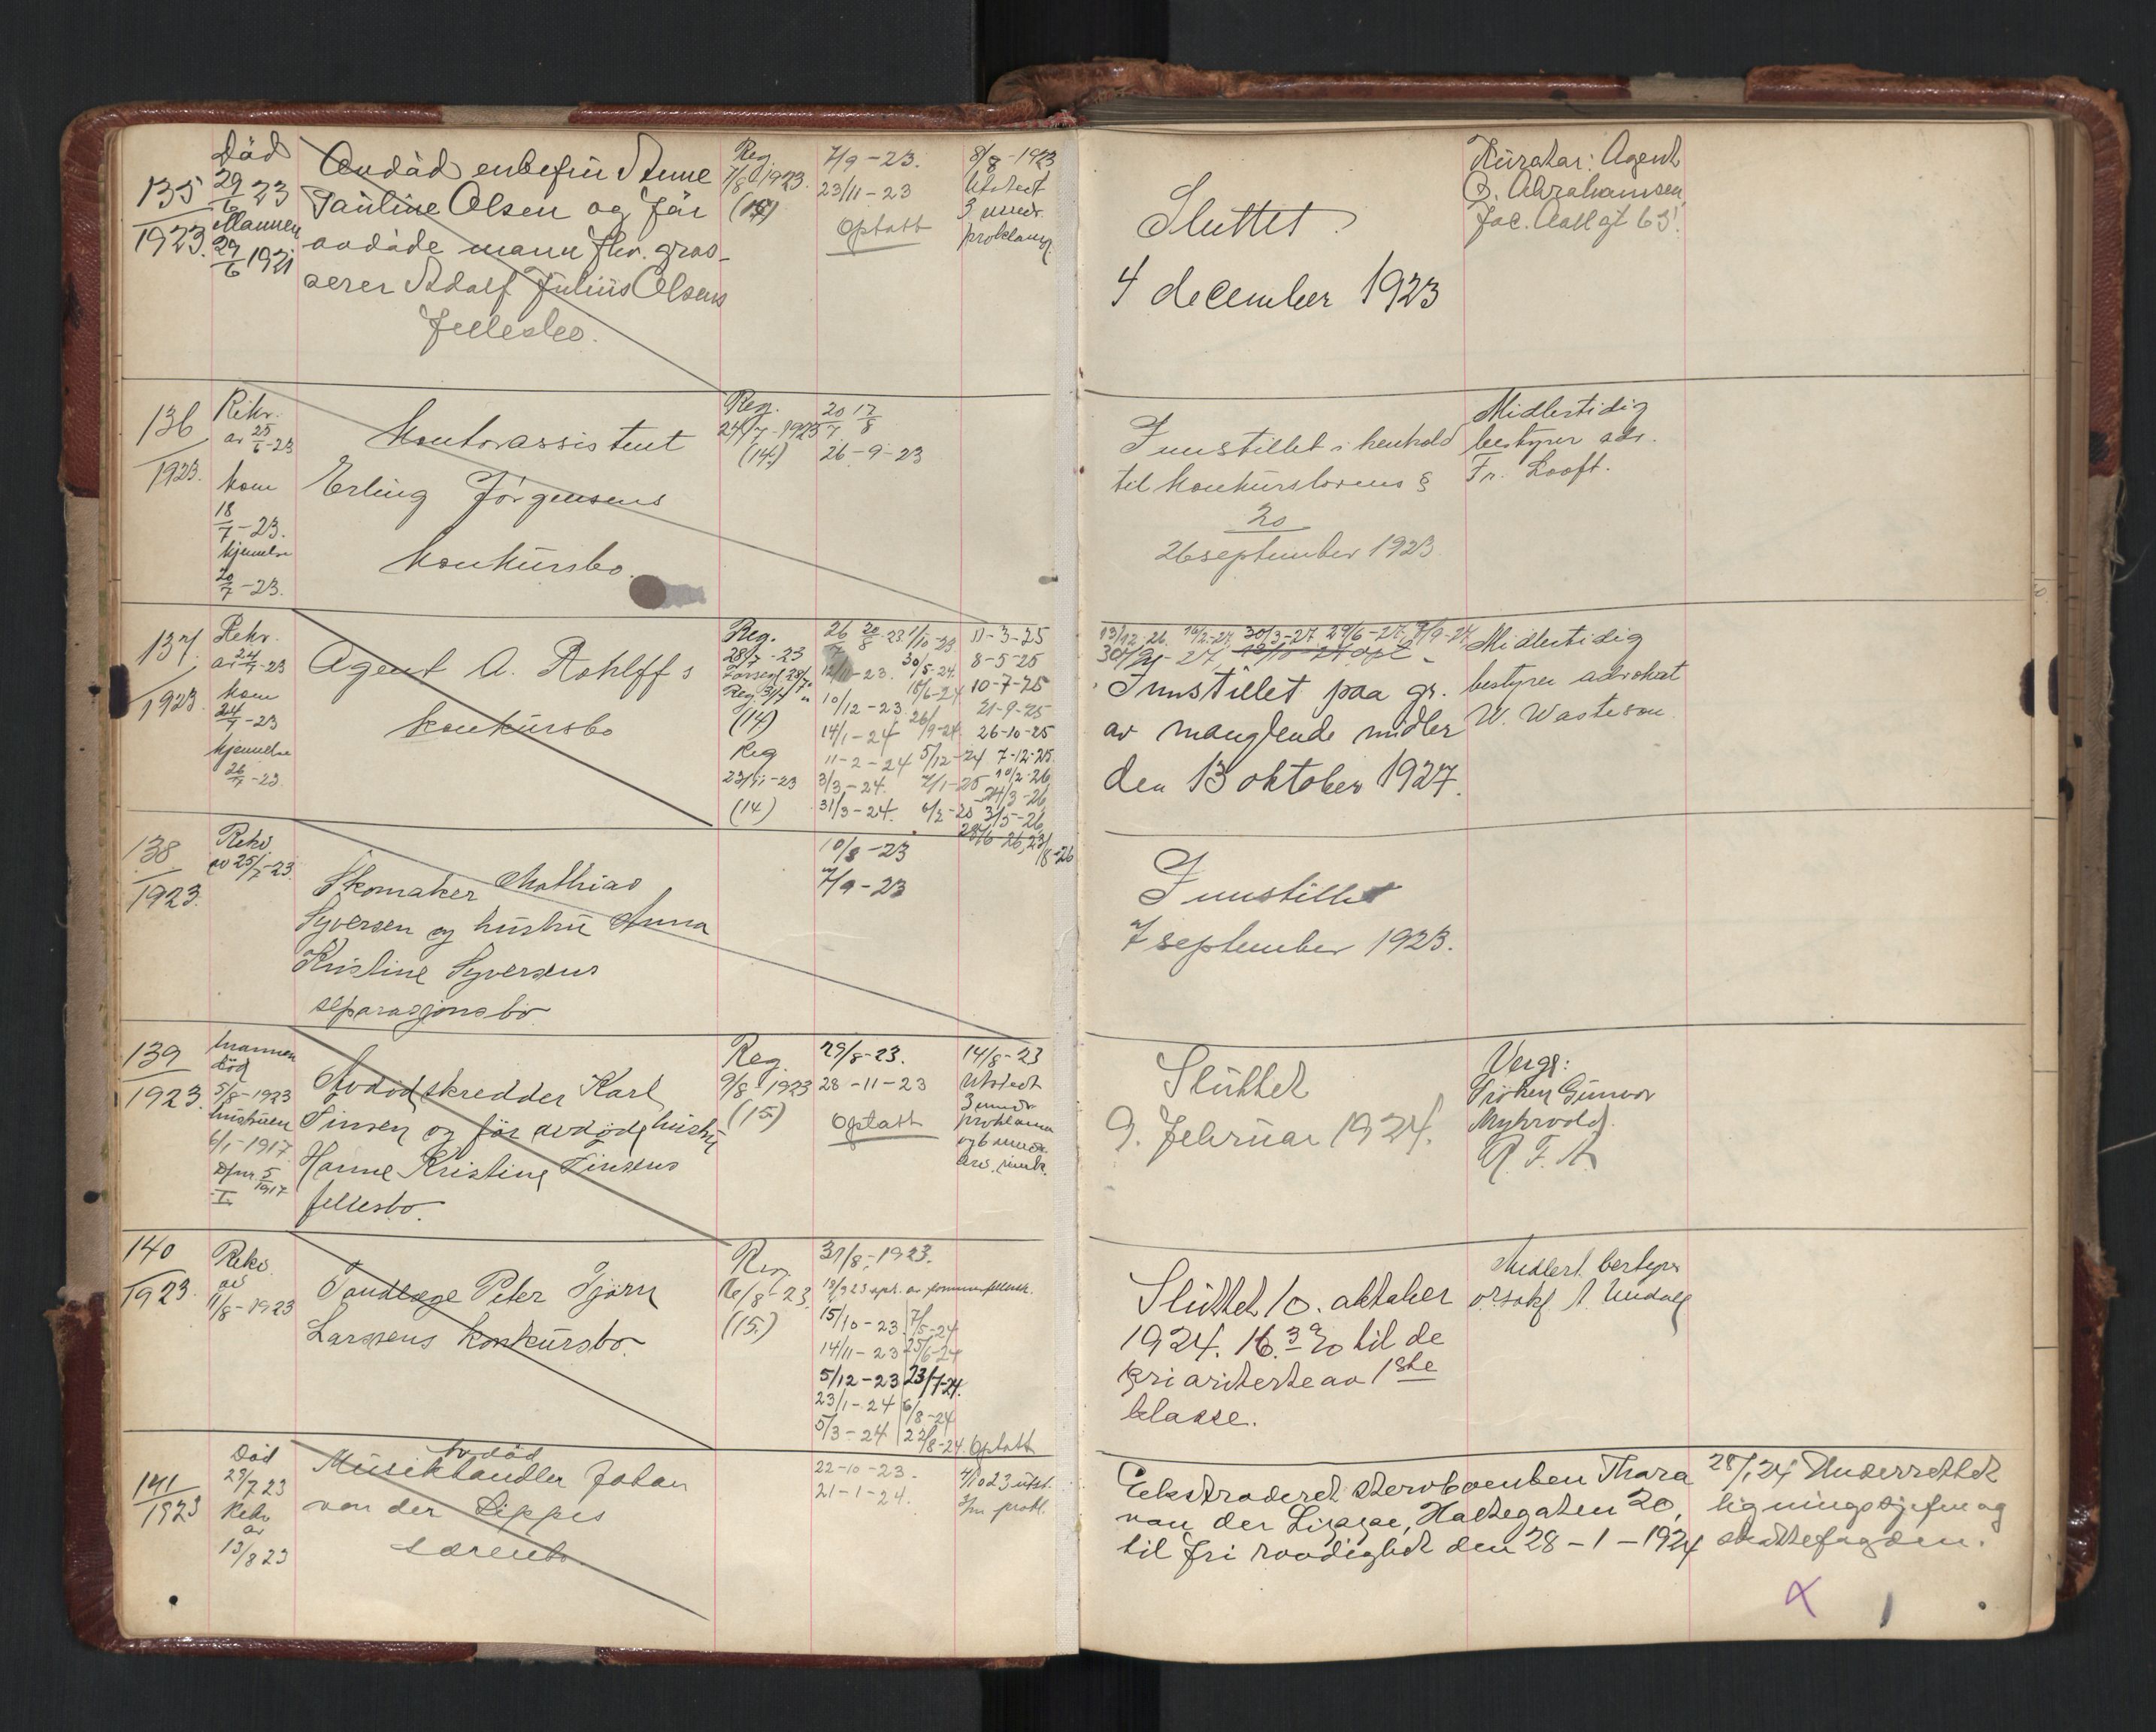 135
1923.
Død
29/6 23
Mannen
29/6 1921
Avdød enkefru Anne
Pauline Olsen og før
avdøde mann fhv. gros-
serer Adolf Julius Olsens
fellesbo.
Reg.
7/8 1923.
7/9-23.
23/11-23
Optatt
8/8-1923
Utstedt
3 mndr.
proklama
Sluttet
4 december 1923
Kurator: Agent
O. Abrahamsen,
Jac. Aallgt 63!
136
1923.
Rekv.
av 25/6-23
kom
18/7-23.
kjennelse
20/7-23.
Kontorassistent
Erling Jørgensens
konkursbo.
Reg.
24/7-1923
(14)
20/7 17/8
26-9-23
Innstillet i henhold
til konkurslovens §
20
26 september 1923.
Midlertidig
bestyrer adv.
Fr. Looft.
137
1923
Rekv.
av 24/7-23
kom
24/7-23
kjennelse
26/7-23.
Agent A. Rohlffs
konkursbo
Reg.
28/7-23
Reg. 31/7
(14)
Reg
23/11-23
(14)
26/7 20/8-23 1/10-23
12/11-23. 30/5-24.
10/12-23. 18/6-24
14/1-24 26/9-24
11-2-24 5/12-24
3/3-24. 7/1-25
31/3-24. 6/2-25
11-3-25
8-5-25
10-7-25
21-9-25
26-10-25
7-12-25.
10/2-26
24/3-26
3/5-26
28/6-26, 23/8-26
13/12-26. 14/2-27, 30/3-27 29/6-27, 9/9-27
Innstillet paa gr.
av manglende midler
den 13 oktober 1927.
Midlertidig
bestyrer advokat
W. Wasteson
138
1923.
Rekv
av 25/7-23.
Skomaker Mathias
Syversen og hustru Anna
Kristine Syversens
separasjonsbo
10/8-23
7/9-23
Innstillet
7 september 1923.
139
1923.
Mannen
død
5/8-1923
hustruen
6/1-1917.
5/1917
I.
Avdød skredder Karl
Finsen og før avdøde hustru
Hanne Kristine Finsens
fellesbo.
Reg
9/8-1923
(15)
29/8-23.
28-11-23
Optatt
14/8-23
Utstedt
3 mndr
proklama
og 6 mndr.
arv. innk.
Sluttet
9. februar 1924.
Verge:
Frøken Gunvor
Myhrvold.
R. F. A.
140
1923.
Rekv
av
11/8-1923
Tandlæge Peter Bjørn
Larssens konkursbo.
Reg.
16/8-23.
(15)
31/8-1923.
15/10-23 7/5-24
14/11-23 25/6-24
5/12-23 23/7-24.
23/1-24 6/8-24
5/3-24 22/8-24. Optatt
Sluttet 10. oktober
1924. 16.3 % til de
prioriterte av 1ste
klasse.
Midlert. bestyrer
o.r.sakf
141
1923
Død
29/7 23
Rekv
av
13/8 23
Avdød
Musikhandler Johan
von der Lippes
særeiebo
22-10-23.
21-1-24.
Ekstraderet stervboenken Thora
von der Lippe, Holtegaten 20,
til fri raadighet den 28-1-1924
28/1 24 Underrettet
ligningssjefen og
skattefogden.